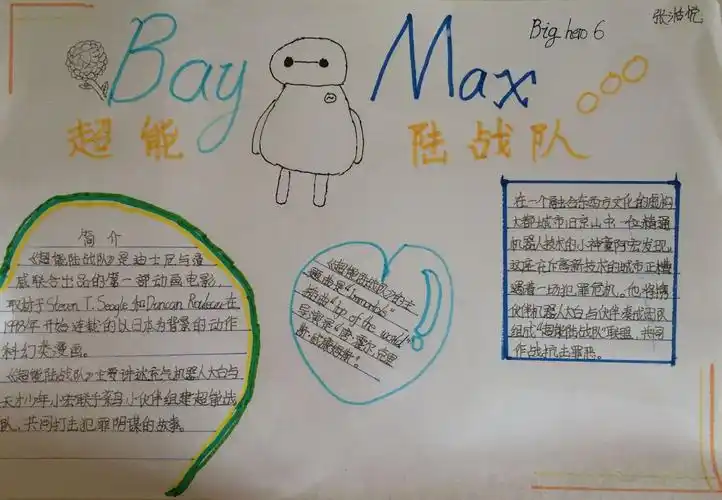 Bay Max
Big hero 6
张
超能 陆战队
简介
《超能陆战队》是迪士尼与漫
威联合出品的第一部动画电影,
取材于Steven T. Seagle 和Duncan Rouleau在
1998年开始连载的以日本为背景的动作
科幻类漫画。
《超能陆战队》主要讲述充气机器人大白与
天才少年小宏联手菜鸟小伙伴组建超能战
队,共同打击犯罪阴谋的故事。
《超能陆战队》的主
题曲是“Immortals”
插曲“top of the world”
导演是“唐·霍尔,克里
斯·威廉姆斯”。
在一个融合东西方文化的虚构
大都城市旧京山中一位精通
机器人技术的小神童阿宏发现,
这座在作高新技术的城市正遭
遇着一场犯罪危机。他将携
伙伴机器人大白与伙伴凑成团队
组成“超能陆战队”联盟,共同
作战抗击罪恶。